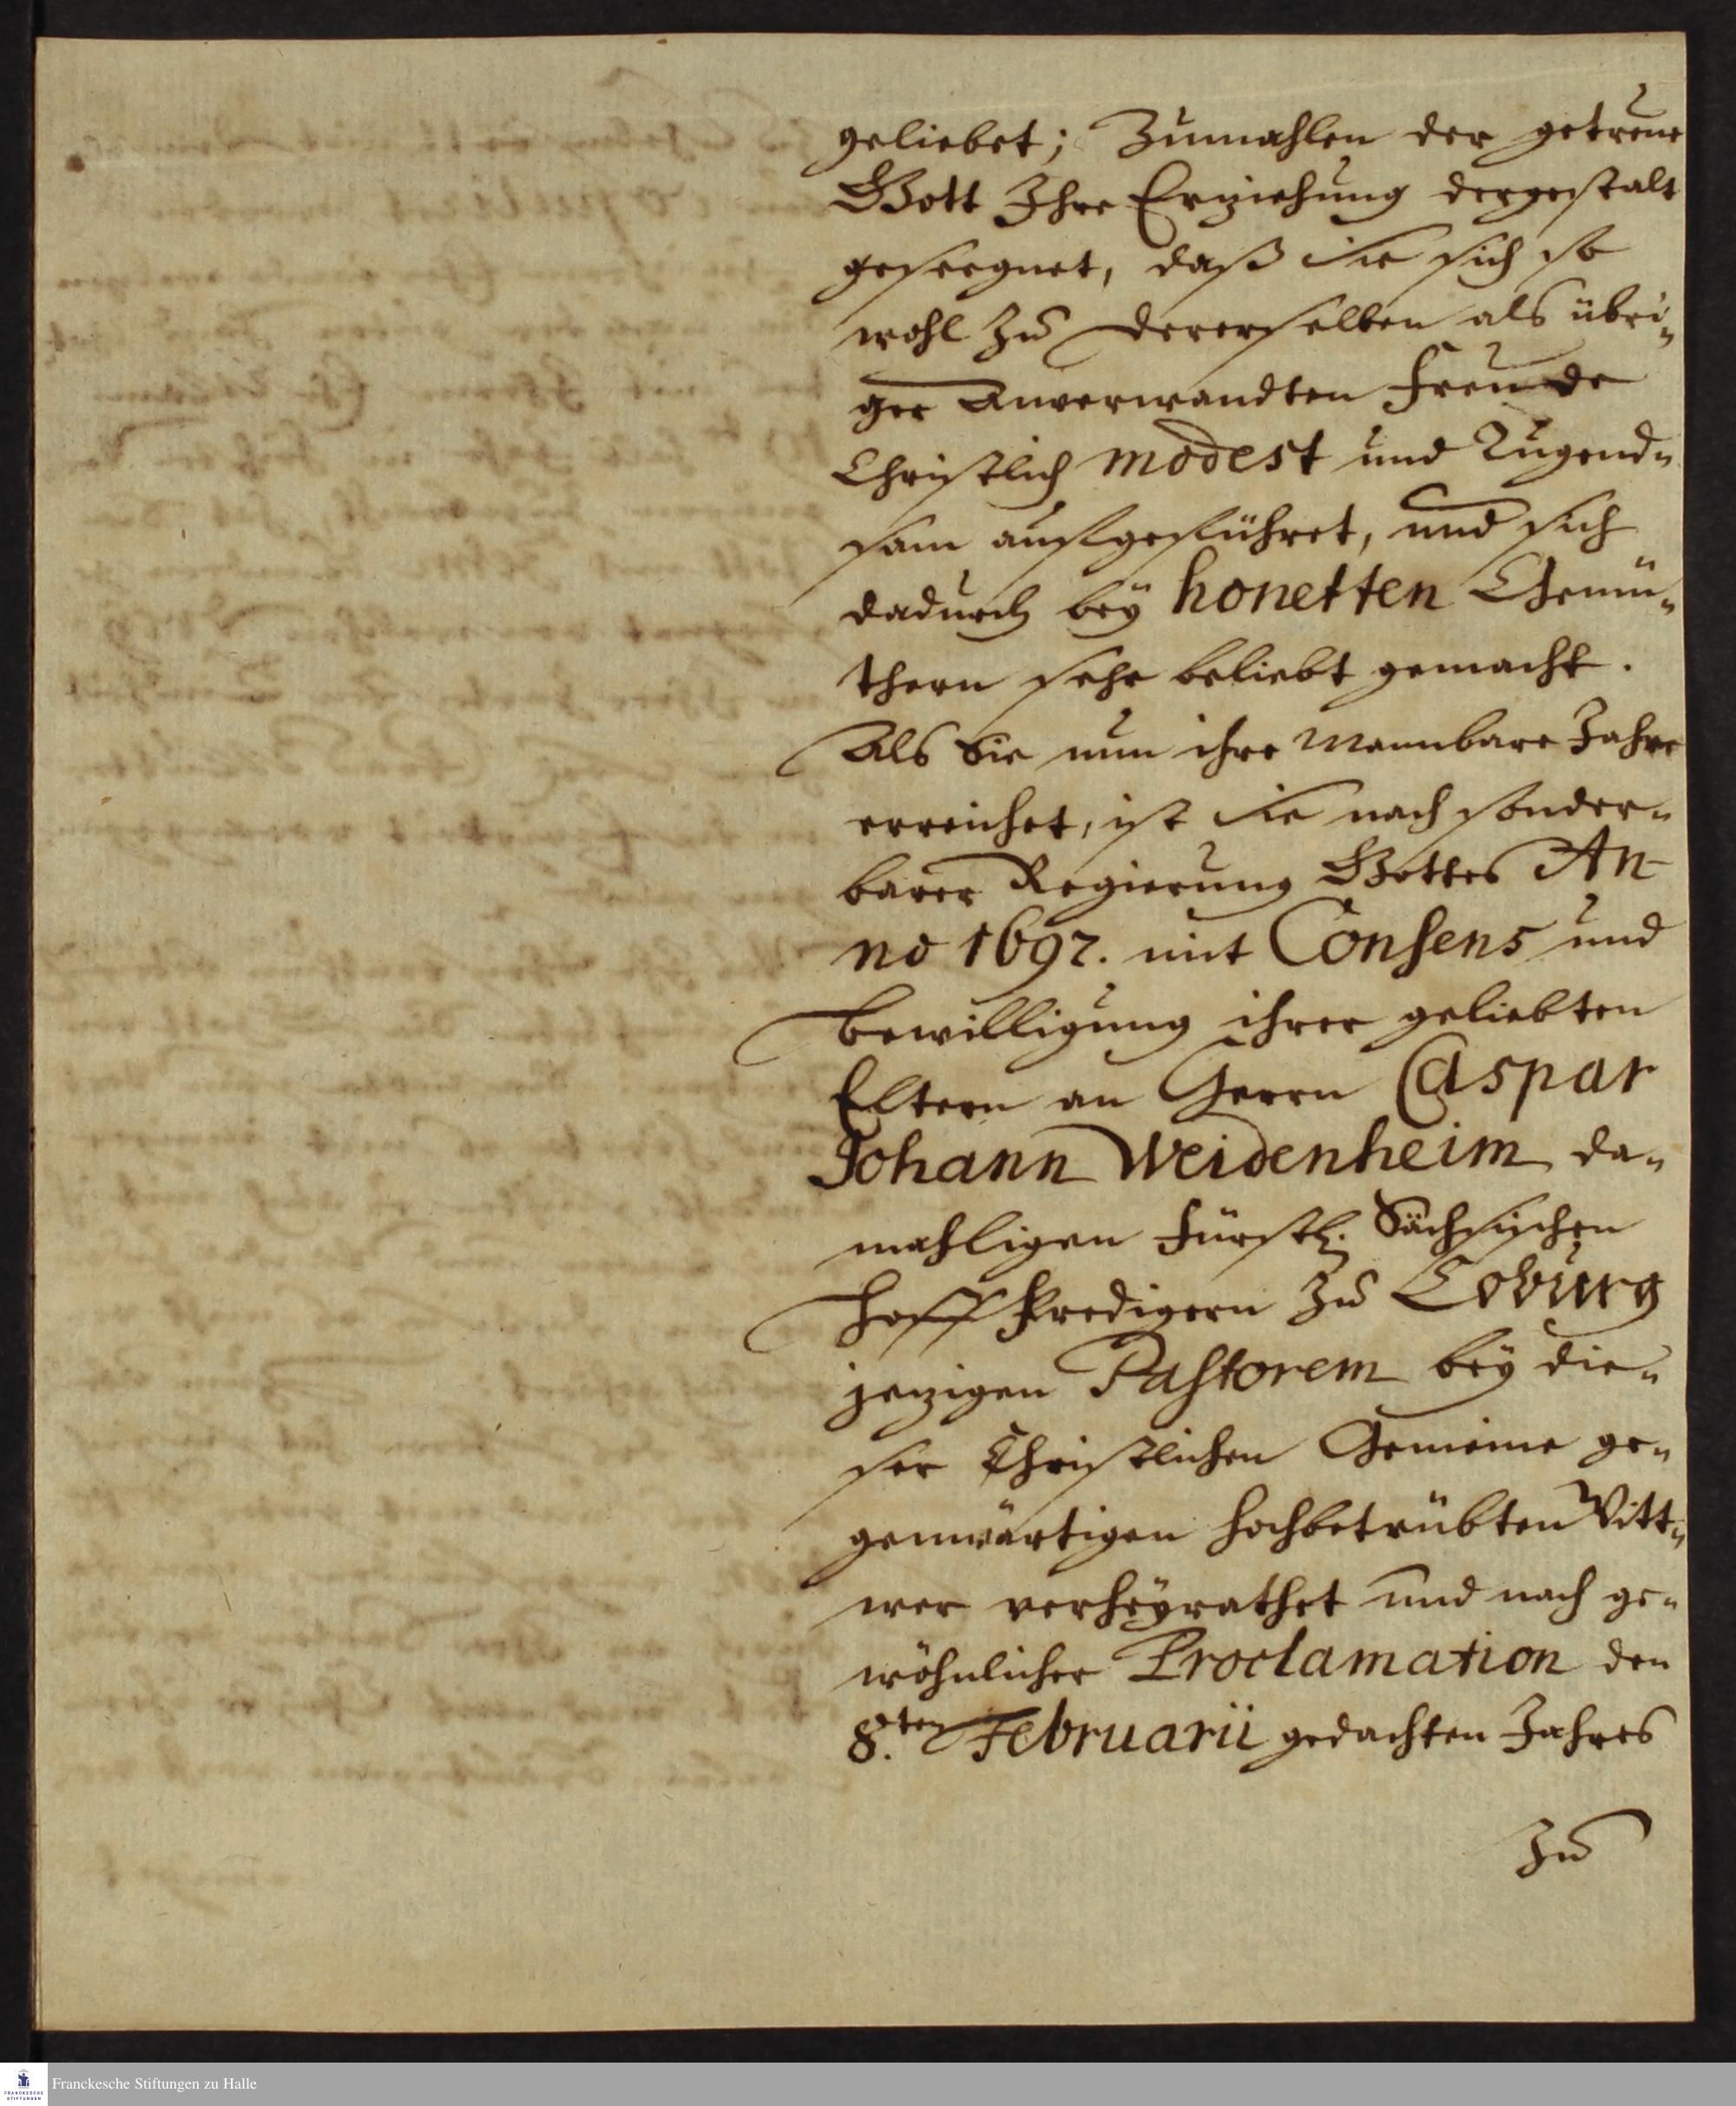 geliebet; Zumahlen der getreue
Gott Ihre Erziehung dergestalt
geseegnet, daß Sie sich so
wohl zu Dererselben als übri„
ger Anverwandten Freunde
Christlich modest und Tugend„
sam auffgeführet, und sich
dadurch beÿ honetten Gemü„
thern sehr beliebt gemacht.
Als Sie nun ihre Mannbare Jahre
erreichet, ist Sie nach sonder„
barer Regierung Gottes An-
no 1697. mit Consens und
bewilligung ihrer geliebten
Eltern an Herrn Caspar
Johann Weidenheim, da„
mahligen Fürstl. Sächsischen
Hoff Predigern zu Coburg
jezigen Pastorem beÿ die„
ser Christlichen Gemeine ge„
genwärtigen hochbetrübten Witt„
wer verheÿrathet und nach ge„
wöhnlicher Proclamation den
8.ten Februarii gedachten Jahres
zu
Franckesche Stiftungen zu Halle
FRANCKESCHE
STIFTUNGEN